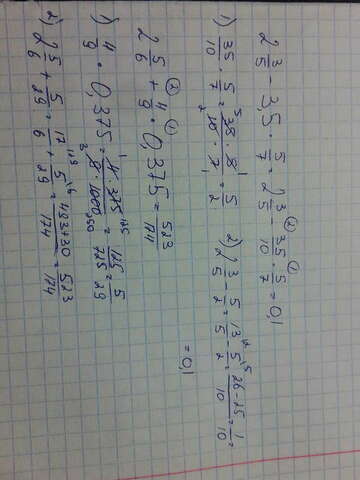 2 3/5 - 3,5 · 5/7 = 2 3/5 - 35/10 · 5/7 = 0,1
1) 35/10 · 5/7 = 35 · 5/10 · 7 = 5/2 2) 2 3/5 - 5/2 = 13/5 - 5/2 = 26-25/10 = 1/10 =
= 0,1
2 5/6 + 4/9 · 0,375 = 523/174
1) 4/9 · 0,375 = 4 · 375/9 · 1000 = 125/725 = 5/29
2) 2 5/6 + 5/29 = 17/6 + 5/29 = 493+30/174 = 523/174